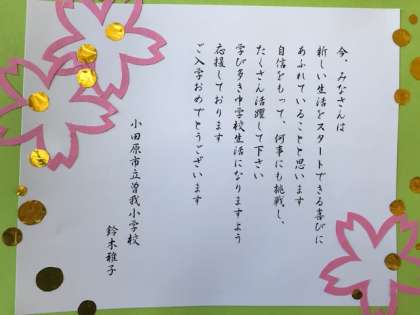 今、みなさんは
新しい生活をスタートできる喜びに
あふれていることと思います
自信をもって、何事にも挑戦し、
たくさん活躍して下さい
学び多き中学校生活になりますよう
応援しております
ご入学おめでとうございます
小田原市立曽我小学校
鈴木雅子